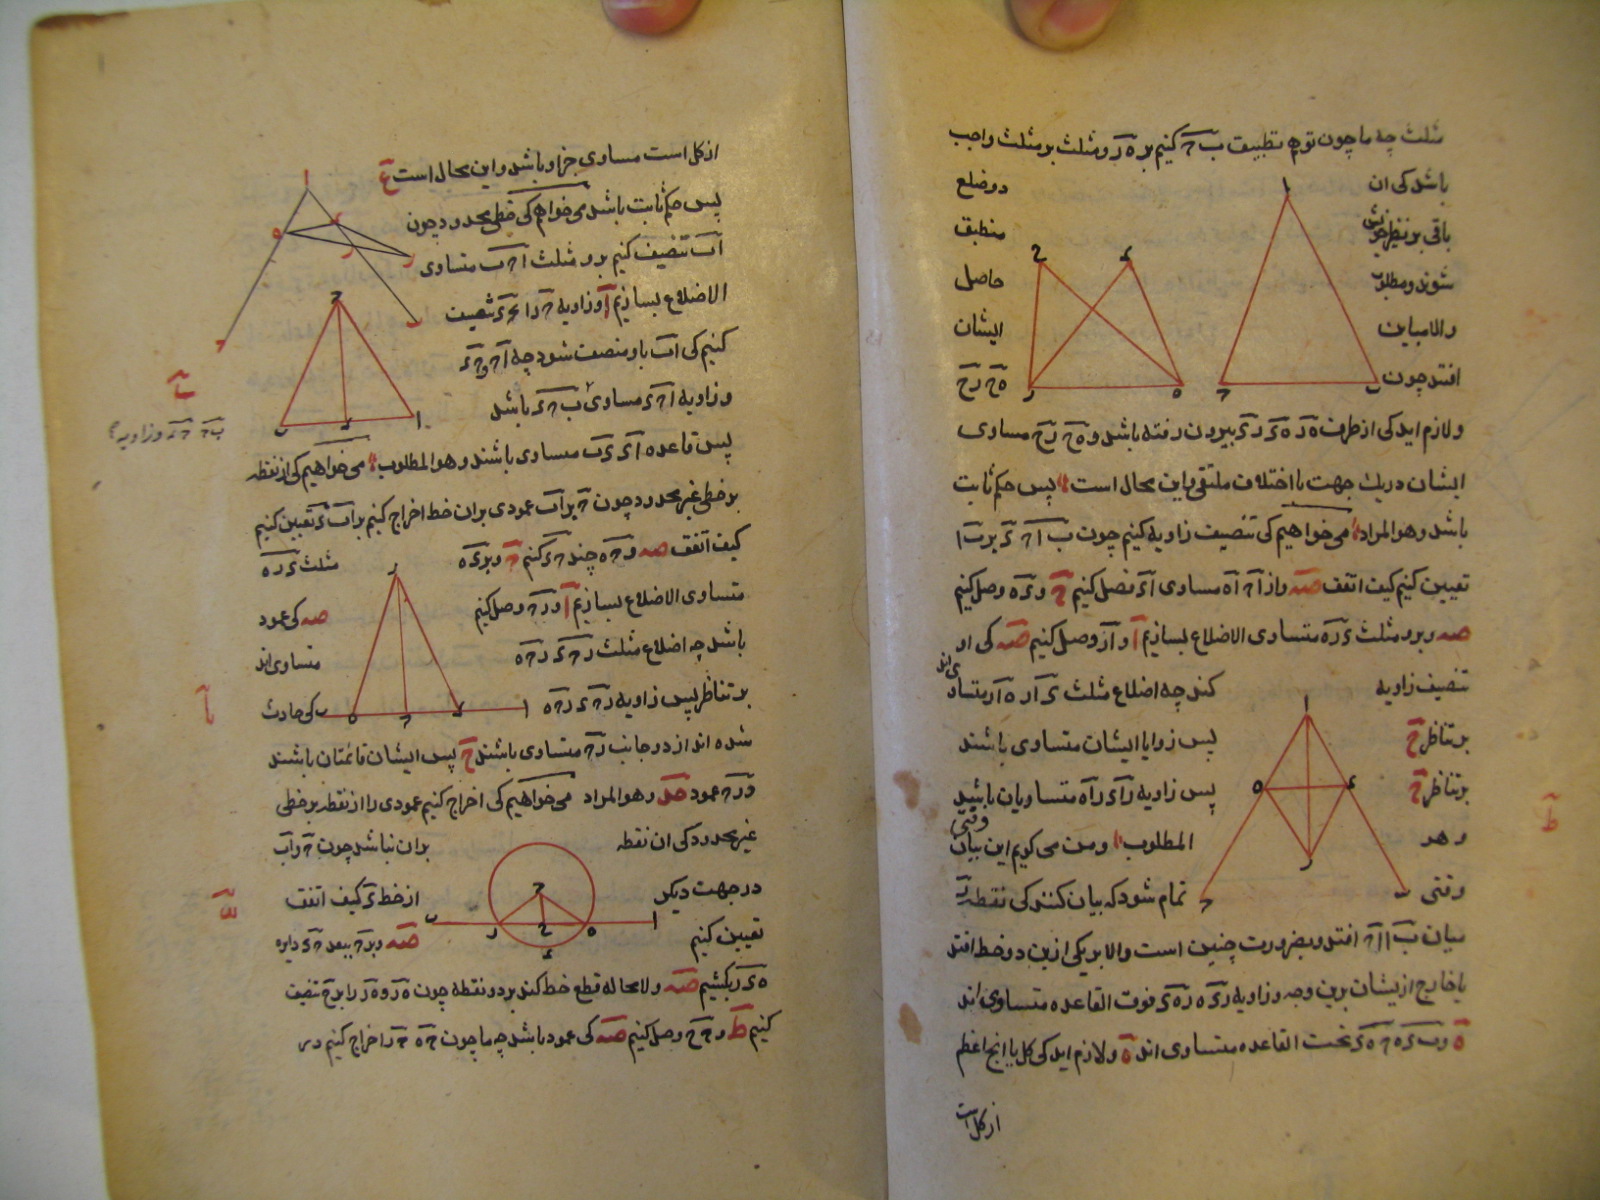 مثلث چه ما چون توهم تطبیق ب ج کنیم بر ه ر و مثلث بر مثلث واجب
باشد کی ان دو ضلع
باقی بر نظیر خویش منطبق
شوند و مطلوب حاصل
والا مباین ایشان
افتد چون ه ح ر ح
و لازم اید کی از طرف ه ر ه ء ر ء بیرون رفته باشد و ه ح ر ح مساوی
ایشان در یک جهت با اختلاف ملتقی و این محال است پس حکم ثابت
باشد و هو المراد می خواهیم کی تنصیف زاویه کنیم چون ب ا ج ء بر ب ا
تعیین کنیم کیف اتفق و از ا ج ا ه مساوی ا ء فصل کنیم و ء ه وصل کنیم
و برو مثلث ء ر ه متساوی الاضلاع بسازیم و ا ر وصل کنیم کی او
تنصیف زاویه کند چه اضلاع مثلث ء ا ر ه ا ر متساوی اند
بر تناظر پس زوایا ایشان متساوی باشند
بر تناظر پس زاویه ر ا ء ر ا ه متساویان باشند
و هو المطلوب و من می کویم این بیان وقتی
وقتی تمام شود که بیان کنند کی نقطه ر
میان ب ا ا ج افتد و بضرورت چنین است والا بر یکی ازین دو خط افتد
یا خارج ازیشان برین وجه و زاویه ر ء ه ر ه ء فوق القاعده متساوی اند
و ب ء ه ج ه ء تحت القاعده متساوی اند و لازم اید کی کل یا انچ اعظم
از کل است
از کل است مساوی جزاو باشد و این محال است
پس حکم ثابت باشد می خواهم کی خطی محدود چون
ا ب تنصیف کنیم برو مثلث ا ج ب متساوی
الاضلاع بسازیم و زاویه ج را بج ء تنصیف
کنیم کی ا ب باو منصف شود چه ا ج و ج ء
و زاویه ا ج ء مساوی ب ج ء باشد
ب ج ج ء و زاویه
پس قاعده ا ء ء ب مساوی باشند و هو المطلوب می خواهیم کی از نقطه
بر خطی غیر محدود چون ج بر ا ب عمودی بران خط اخراج کنیم بر ا ب ء تعیین کنیم
کیف اتفق و ج ه چند ج ء کنیم و بر ء ه مثلث ء ر ه
متساوی الاضلاع بسازیم و ر ج وصل کنیم کی عود
باشد چه اضلاع مثلث ر ج ء ر ج ه متساوی اند
بر تناظر پس زاویه ر ج ء ر ج ه کی حادث
شده اند از دو جانب ر ج متساوی باشند پس ایشان قائمتان باشند
و ر ج عمود و هو المراد می خواهیم کی اخراج کنیم عمودی را از نقطه بر خطی
غیر محدود کی ان نقطه بران نباشد چون ج و ا ب
در جهت دیکر از خط ء کیف اتفق
تعیین کنیم و بر ج ببعد ج ء دایره
ه ء ر بکشیم و لا محاله قطع خط کند بر دو نقطه چون ه ر و ه ر را بر ح تنصیف
کنیم و ج ح وصل کنیم کی عمود باشد چه ما چون ج ه ج ر اخراج کنیم در